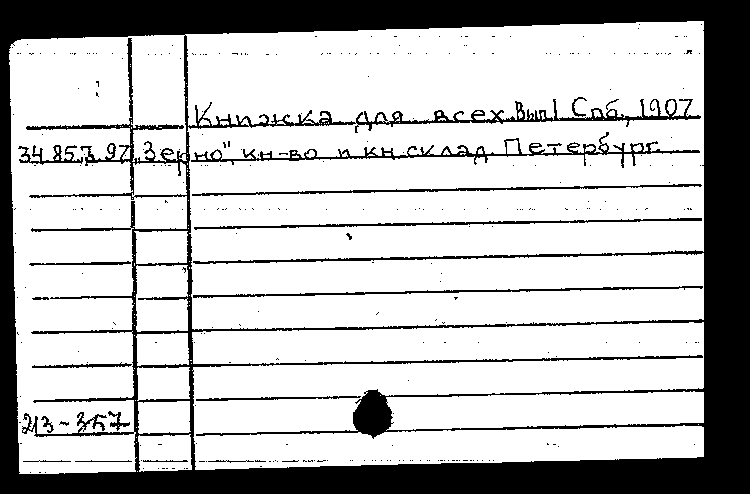 Книжка для всех. Вып. 1 Спб., 1907
34.85.7.97 „Зерно", кн-во и кн. склад Петербург.
213-357